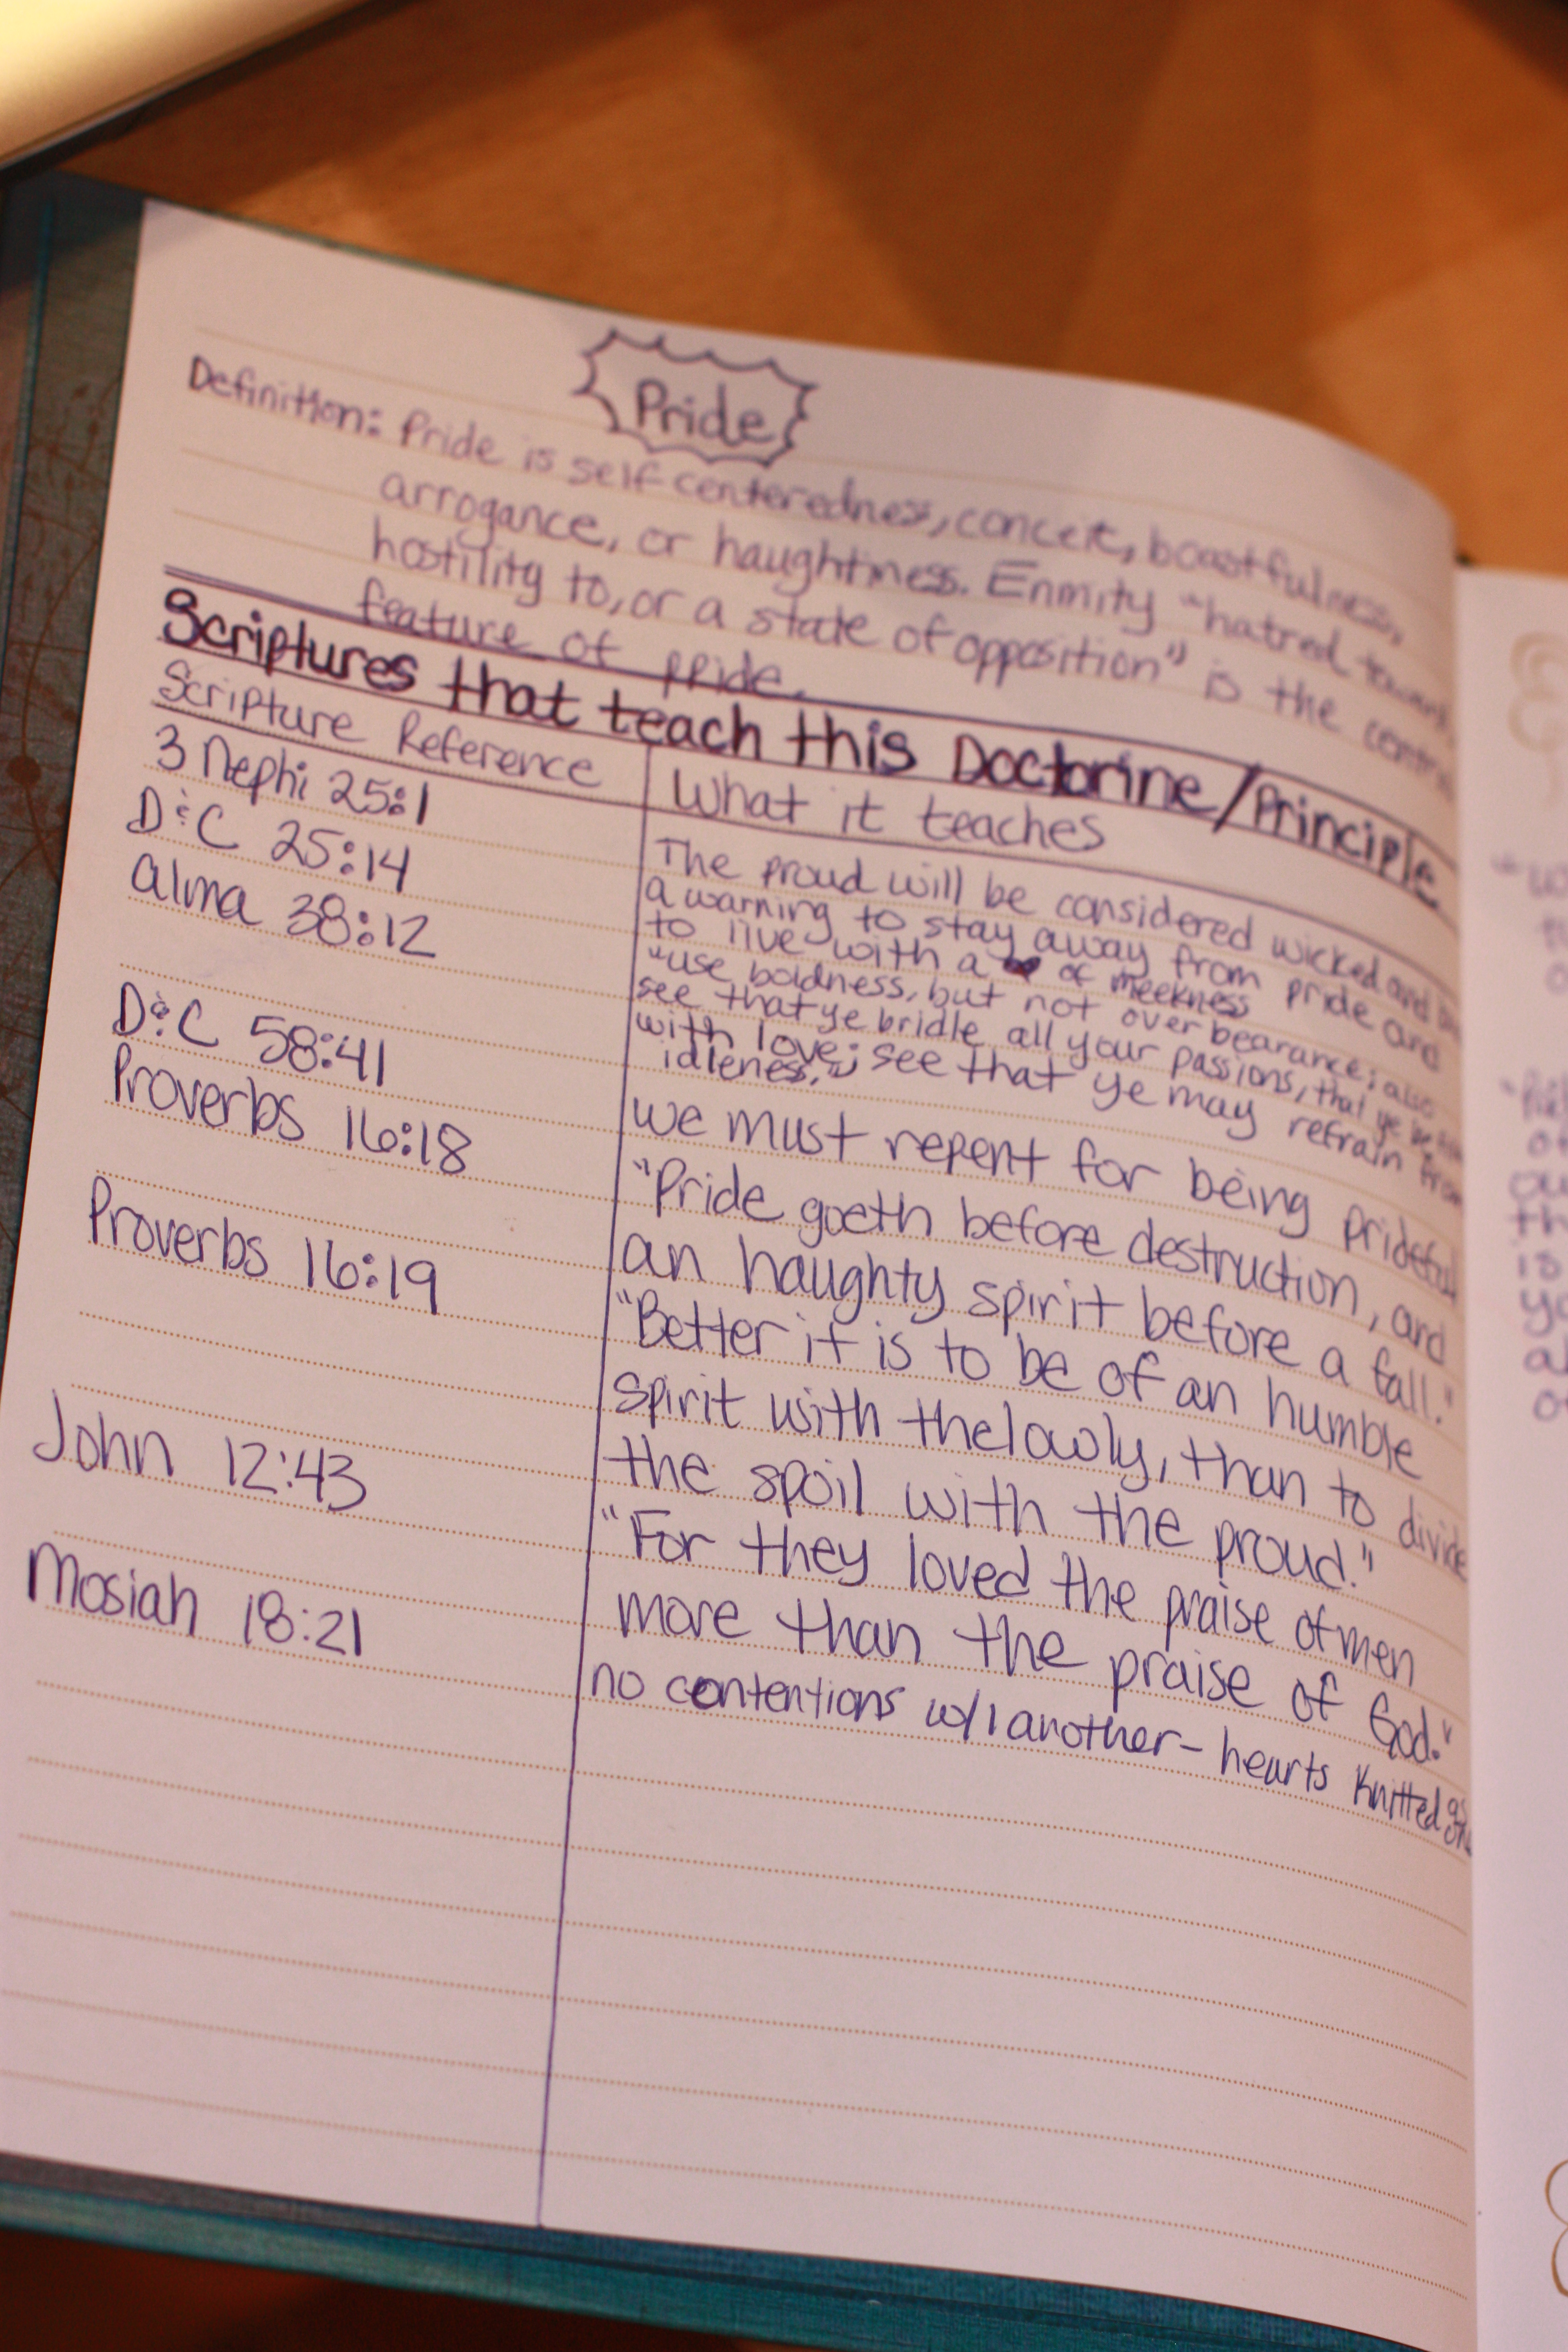 Pride
Definition: Pride is self centeredness, conceit, boastfulness,
arrogance, or haughtiness. Enmity "hatred toward,
hostility to, or a state of opposition" is the
feature of pride.
Scriptures that teach this Doctorine/Principle
Scripture Reference
What it teaches
3 Nephi 25:1
The proud will be considered wicked and
D&C 25:14
a warning to stay away from pride and
to live with a ♥ of meekness
Alma 38:12
"use boldness, but not over bearance; also
see that ye bridle all your passions, that ye be filled
with love; see that ye may refrain from
idleness."
D&C 58:41
we must repent for being prideful
Proverbs 16:18
"Pride goeth before destruction, and
an haughty spirit before a fall."
Proverbs 16:19
"Better it is to be of an humble
spirit with the lowly, than to divide
the spoil with the proud."
John 12:43
"For they loved the praise of men
more than the praise of God."
Mosiah 18:21
no contentions w/ 1 another - hearts knitted as
one